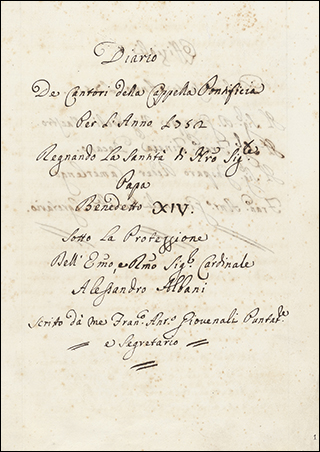 Diario
De Cantori della Cappella Pontificia
Per L'Anno 1752
Regnando La Santità di Nro Sigre
Papa
Benedetto XIV.
Sotto La Protezzione
Dell' Emo, e Rmo Sigr. Cardinale
Alessandro Albani
Scrito dà me Fran.co Ant.o Giovenali Puntat.re
e Segretario
1